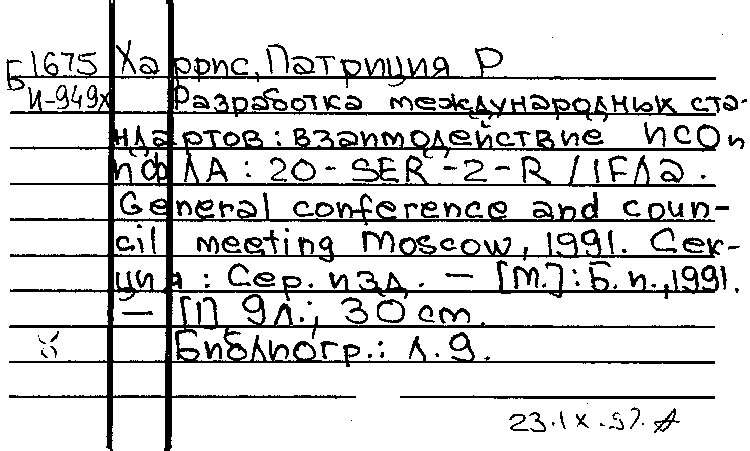 Б 1675 Харрис, Патриция Р
И-949х Разработка международных ста-
ндартов: взаимодействие ИСО и
ИФЛА: 20-SER-2-R / IFLA.
General conference and coun-
cil meeting Moscow, 1991. Сек-
ция: Сер. изд. — [М.]: Б. и., 1991.
— [1] 9 л.; 30 cm.
Библиогр.: л. 9.
23.IX.97.